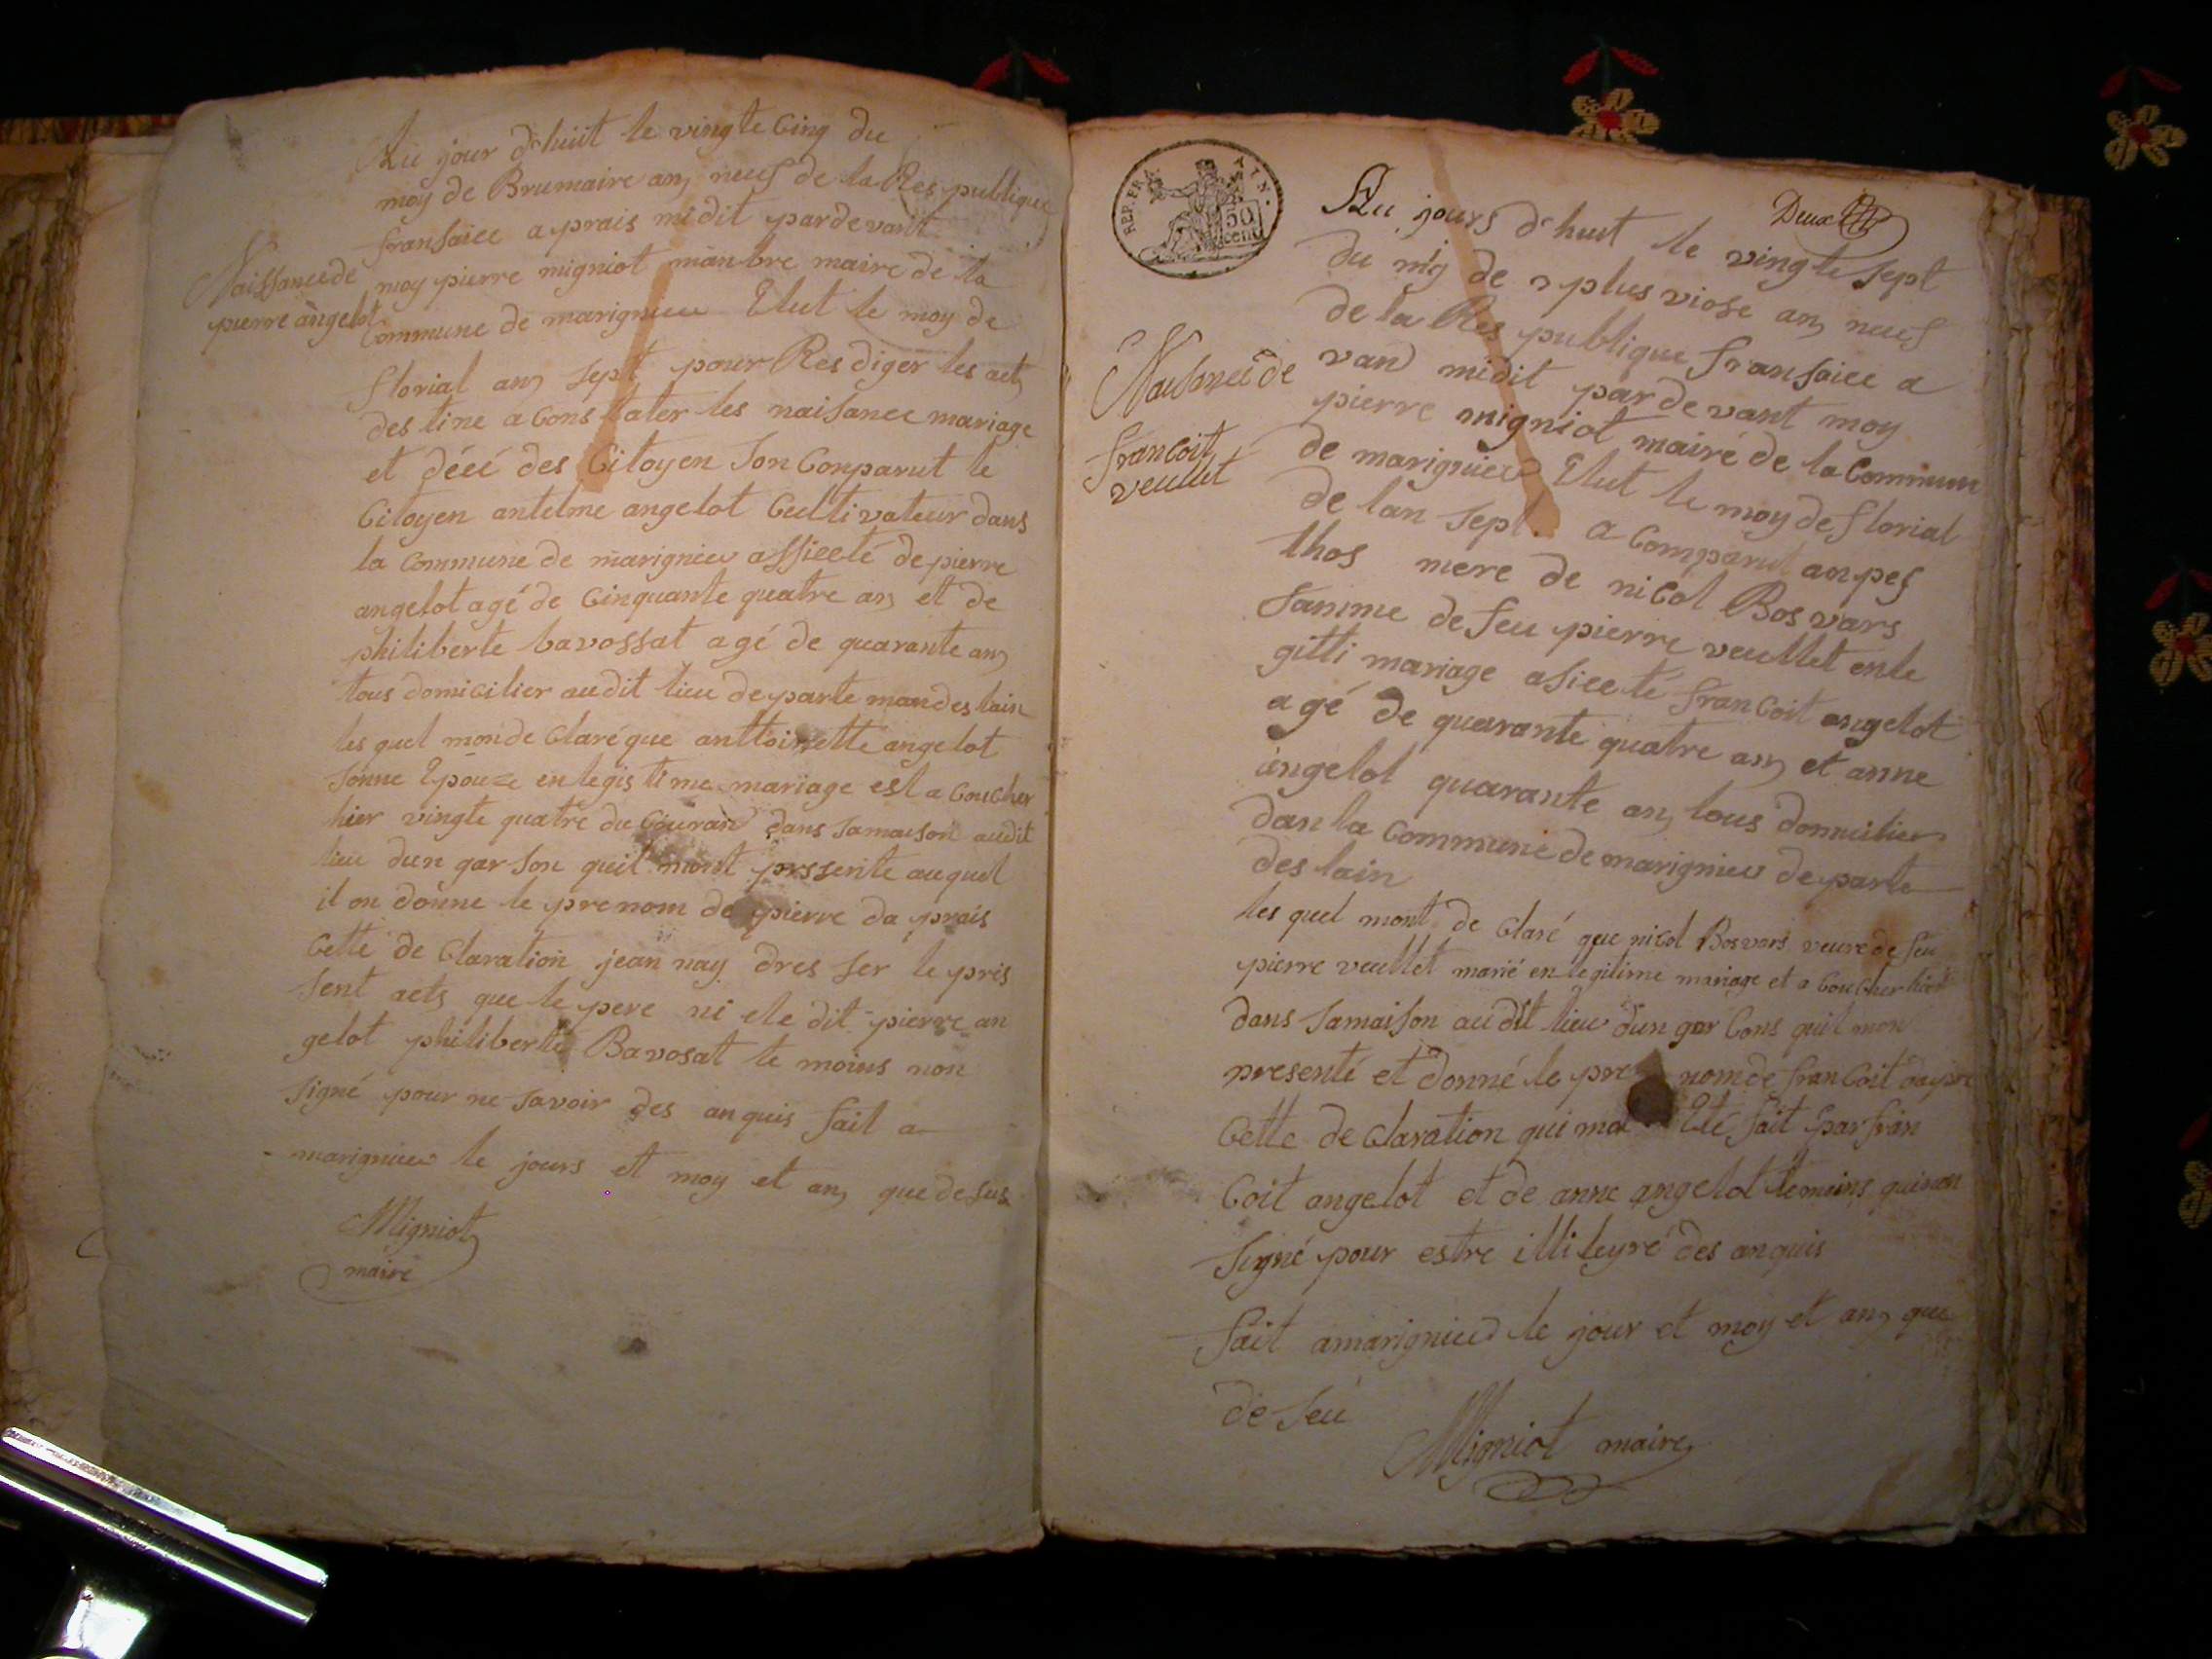 Au jour d'huit le vingte Cinq du
moy de Brumaire an neuf de la Res publique
fransaice a prais midit pardevant
Naissance de
pierre angelot
moy pierre migniot manbre maire de la
Commune de marignieu Elut le moy de
florial an sept pour Res diger les acts
des tine a Cons tater les naisance mariage
et décé des Citoyen Son Conparut le
Citoyen antelme angelot Cultivateur dans
la Commune de marignieu assiceté de pierre
angelot agé de Cinquante quatre an et de
philiberte bavossat agé de quarante an
tous domicilier audit lieu de parte mandeslain
les quel monde Claré que anttoinette angelot
Sonne Epouze en legis time mariage est a Coucher
hier vingte quatre du Couran dans Samaison audit
lieu dun gar son queil mont pressente auquel
il on donne le prenom de pierre da prais
Cette de Claration jean nay dres ser le pris
sent acts que le pere ni ele dit pierre an
gelot philiberte Bavosat te moins non
signé pour ne savoir des an quis fait a
marignieu le jours et moy et an que desus
Migniot
maire
REP. FRA
50
cent
Deux
Au jours d'huit le vingte sept
du de plus viose an neuf
de la Res publique fransaice a
Naisance de
francoit
veullet
van midit pardevant moy
pierre migniot maire de la Commune
de marignieu Elut le moy de florial
de lan sept. a Comparut anpes
thos mere de nicol Bos vars
famme de feu pierre veullet enle
gitti mariage asiceté francoit angelot
agé de quarante quatre an et anne
angelot quarante an tous domicilier
dan la Commune de marignieu de parte
des lain
les quel mont de Claré que nicol Bosvars veuve de feu
pierre veullet marié en legitime mariage et a Coucher hier
dans Samaison au dit lieu dun gar Cons quil mon
presenté et donné le pre nomde francoit dapre
Cette de Claration qui ma Eté fait par fran
Coit angelot et de anne angelot temoins quinon
signé pour estre illiteyré des anquis
fait amarignieu le jour et moy et an que
de seu
Migniot maire